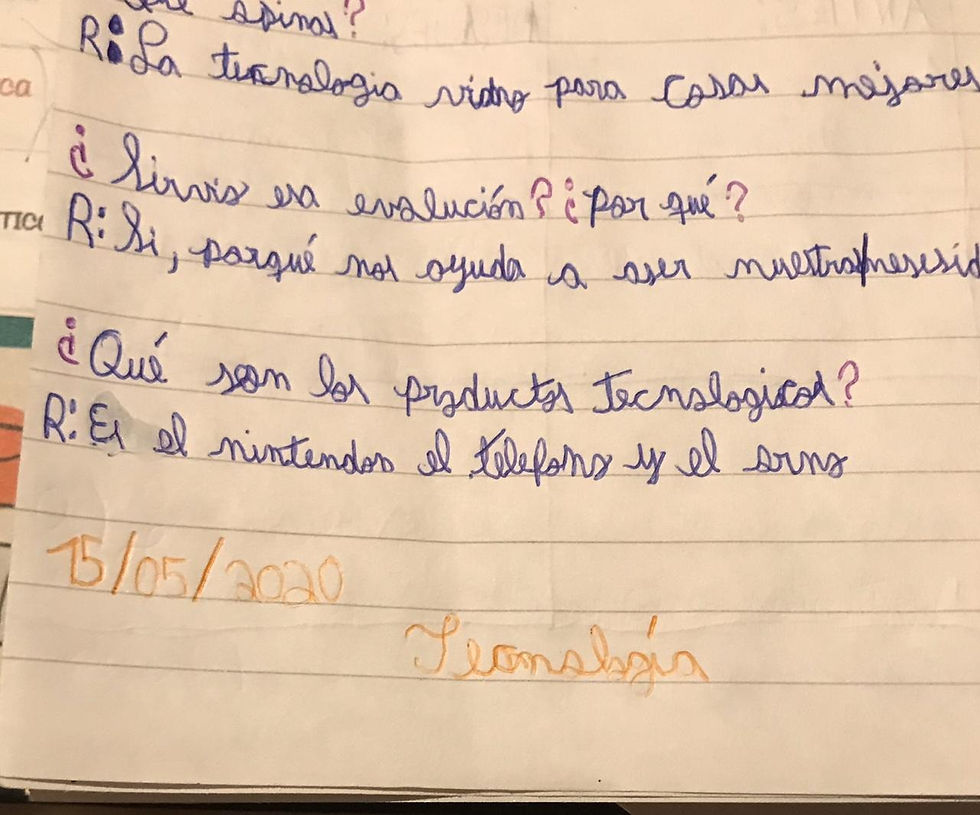 opinas?
R: La tecnologia vidno para cosas mejores
¿Sirvio esa evolución? ¿por qué?
R: Si, porqué nos ayuda a aser nuestras nesesid
¿Qué son los productos tecnologicos?
R: Es el nintendon el telefono y el orno
15/05/2020
Tecnología
ca
TICA